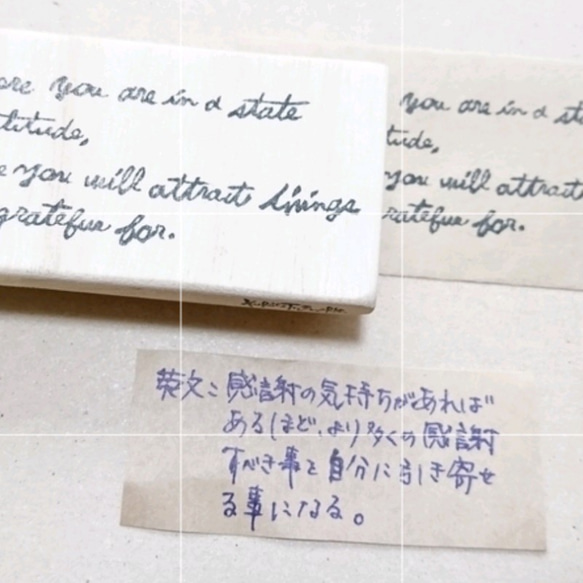 you are in a state
titude,
you will attract things
grateful for.
you are in a
tude,
you will attract
for.
英文：感謝の気持ちがあれば
あるほど、より多くの感謝
すべき事を自分に引き寄せ
る事になる。